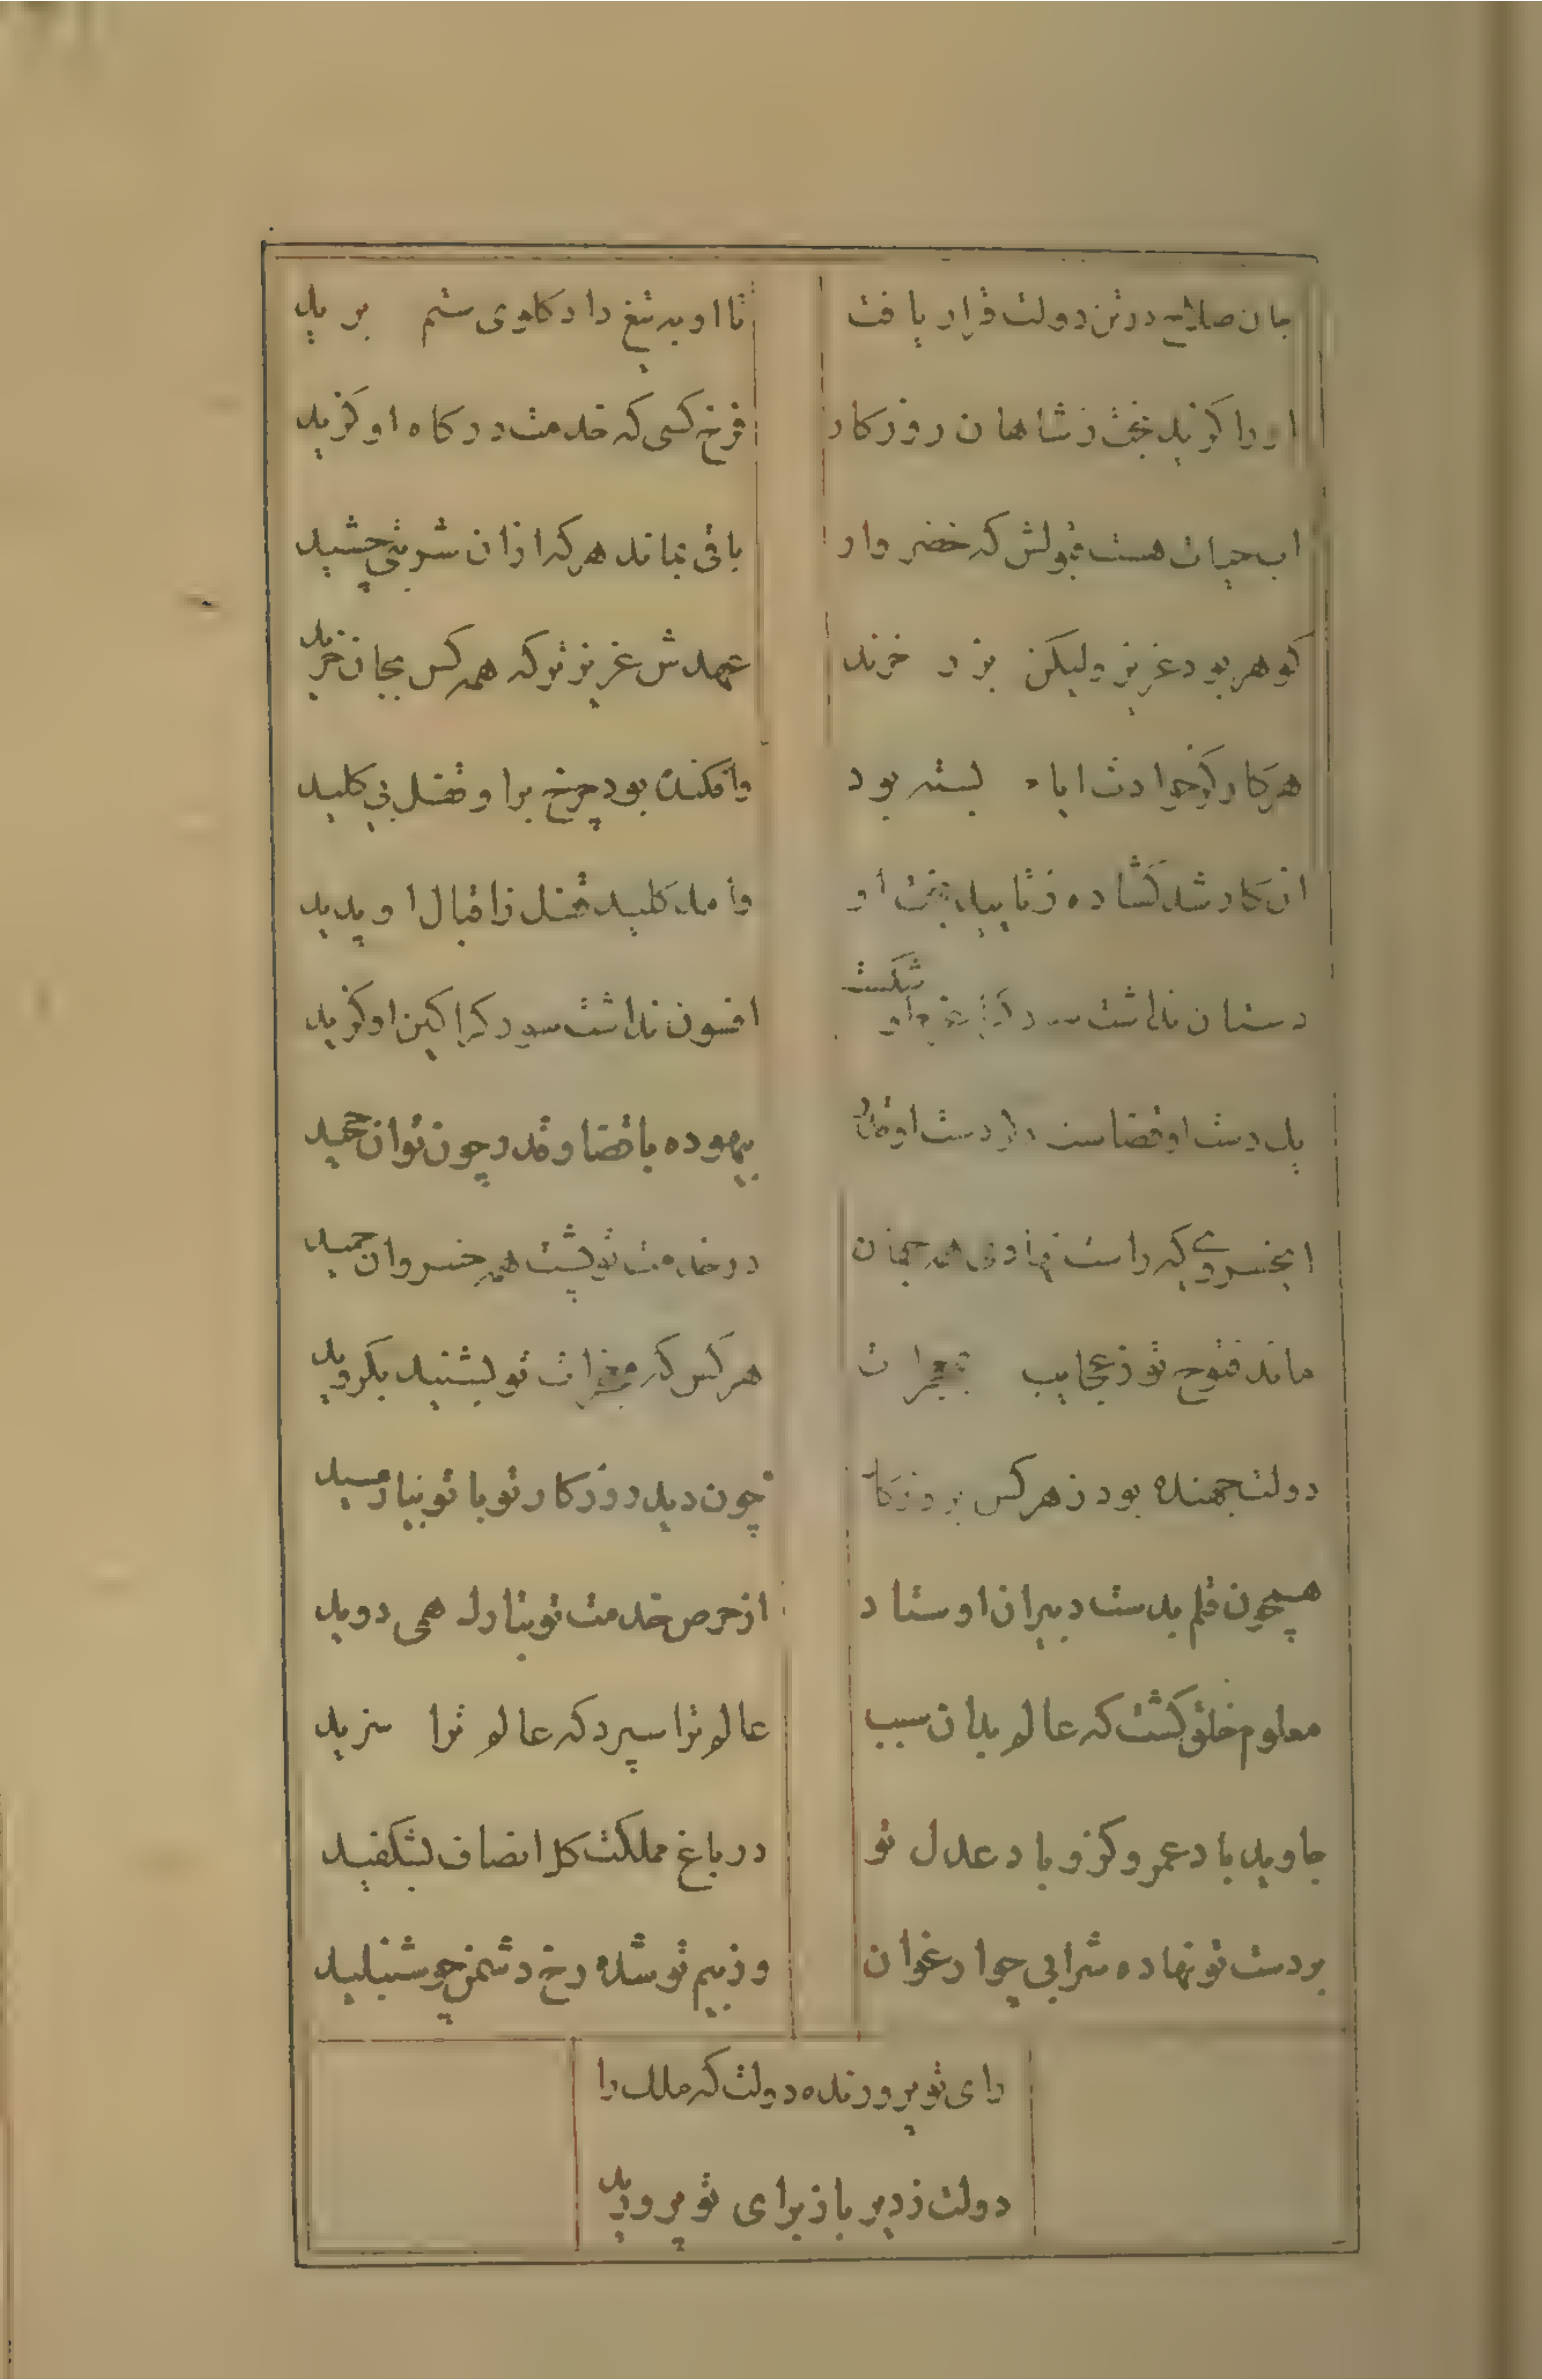 جان صلاح در تن دولت قرار یافت
تا او به تیغ داد کلوی ستم برید
او را گزید بخت ز شاهان روزکار
فرخ کسی که خدمت درکاه او کزید
اب حیات هست قبولش که خضر وار
باقی بماند هرکه ازان شربتی چشید
کوهر بود عزیز ولیکن بزر خرند
عهدش عزیزتر که همه کس بجان خرید
هر کار کز حوادث ایام بسته بود
وافکنده بود چرخ برا و قفل بی کلید
ان کار شد کشاده ز تایید بخت او
وامد کلید قفل ز اقبال او پدید
دستان نداشت سود شکست او
افسون نداشت سود کرا کین او کزید
ید دست او قضاست دست او قدر
بیهوده با قضا و قدر چون توان چخید
ای خسروی که راست نهادی همه جهان
در خدمت تو پشت همه خسروان خمید
ماند فتوح تو ز عجایب بمعجزات
هر کس که معجزات تو بشنید بکروید
دولت جهنده بود ز هر کس بروزکار
چون دید روزکار تو با تو بیارمید
همچون قلم بدست دبیران اوستاد
از حرص خدمت تو بتارک همی دوید
معلوم خلق کشت که عالم بدان سبب
عالم ترا سپرد که عالم ترا سزید
جاوید باد عمر و کزو باد عدل تو
در باغ مملکت کل انصاف بشکفید
بر دست تو نهاده شرابی چو ارغوان
وز بیم تو شده رخ دشمن چو شنبلید
رای تو پرورنده دولت که ملک را
دولت ز دیر باز برای تو پرورید